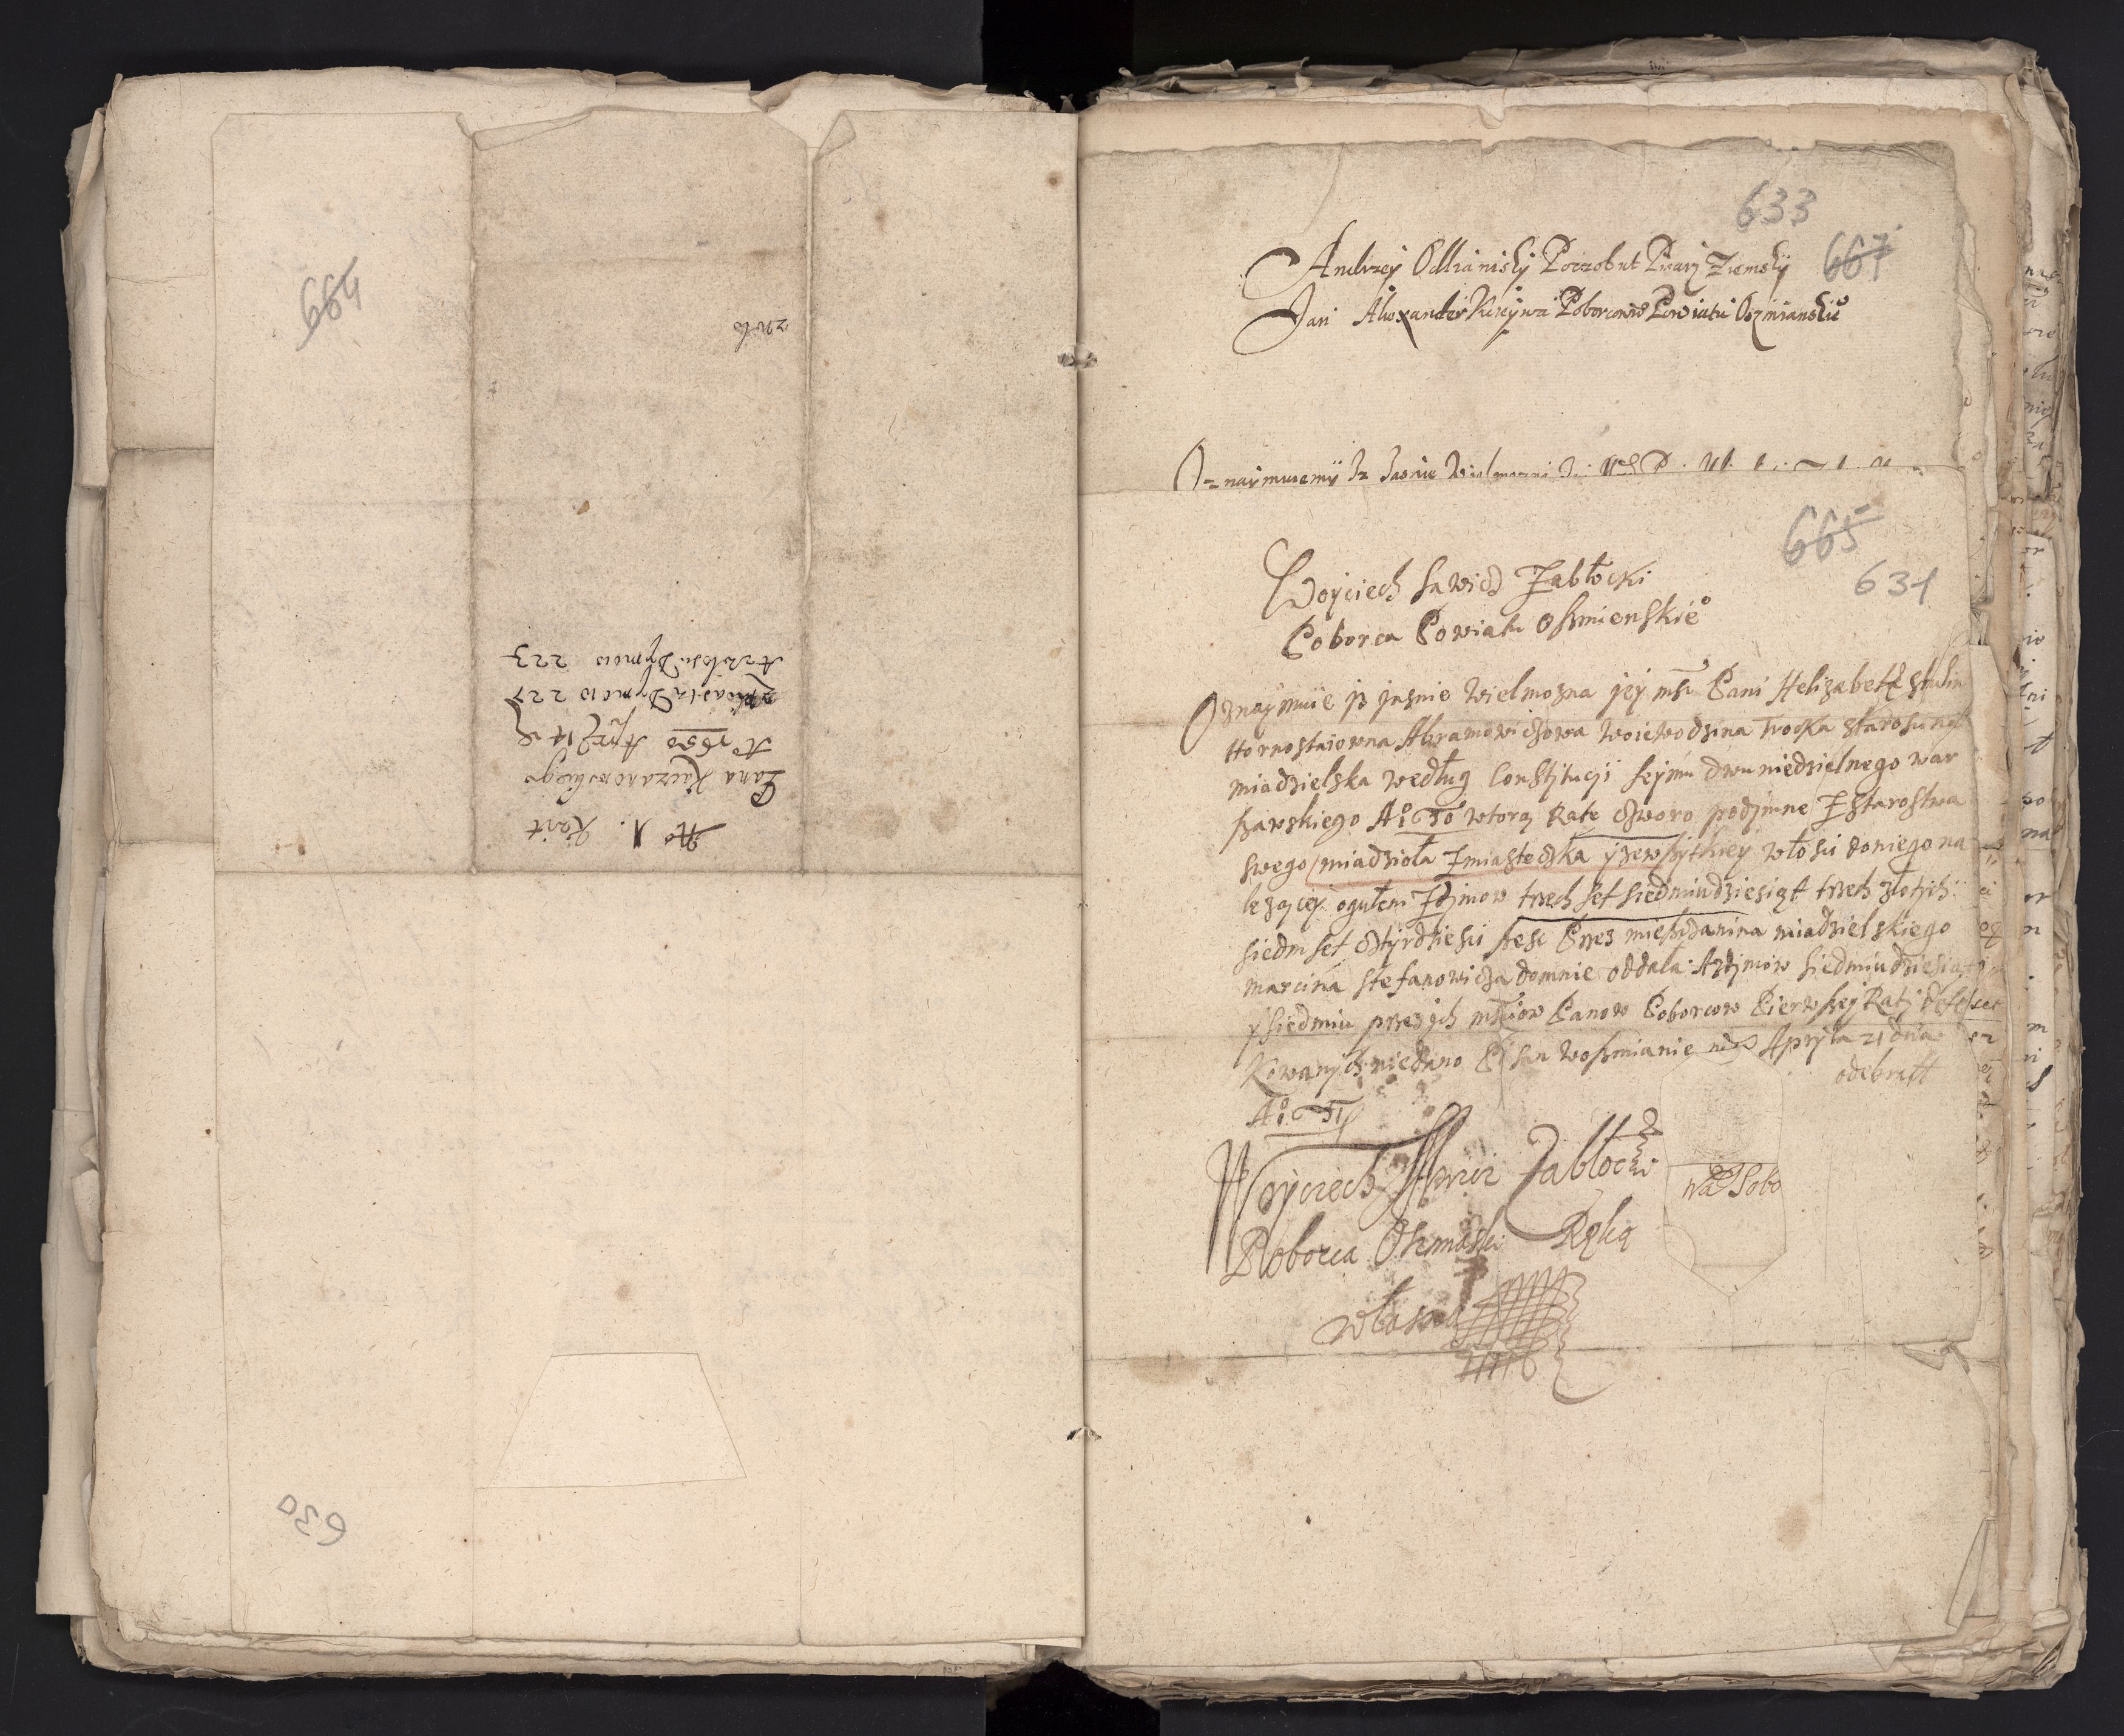 664
No 1. Kwit
Pana Kaczanowskiego
Ao 1650 Apryl 14 d
z Miasta Dymow 227
A z włosci Dymow 223
630
633
667
Andrzey Odlianicky Poczobut Pisarz Ziemsky
Jan Alexander Poborcowie Powiatu Oszmianskie°
Oznaymuiemy Iz Jasnie Wielmozni
665
631
Woyciech Sawicz Zabłocki
Poborca Powiatu Oszmienskie°
Oznaymuie jz jasnie Wielmozna jey msc Pani Helizabetha
Hornostaiowna Abramowiczowa Woiewodzina Trocka Starościna
miadzielska według Constitucji Sejmu dwuniedzielnego war
szawskiego Ai° 50 wtorą Rate czworo podymne Z starostwa
swego miadzioła Z miasteczka y zewszytkiey włosci doniego na
lezącey ogułem Zdymow trzech set siedmiudziesiąt trzech złotych
siedm set cztyrdziesci szesc Przez mieszczanina miadzielskiego
marcina Stefanowicza domnie oddala. A zdymow siedmiudziesiąt
y siedmiu przez ich msciow Panow Poborcow Pierwszey Raty defal
kowanych niedano Pisan w Oszmianie Apryla 21 dnia
Ai° 51
odebrałt
Woyciech Sawicz Zabłocki
Poborca Oszmański Ręką
własną